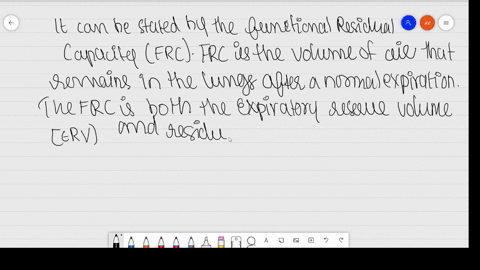 It can be stated by the functional Residual
Capacity (FRC). FRC is the volume of air that
remains in the lungs after a normal expiration.
The FRC is both the Expiratory reserve volume
(ERV) and residu